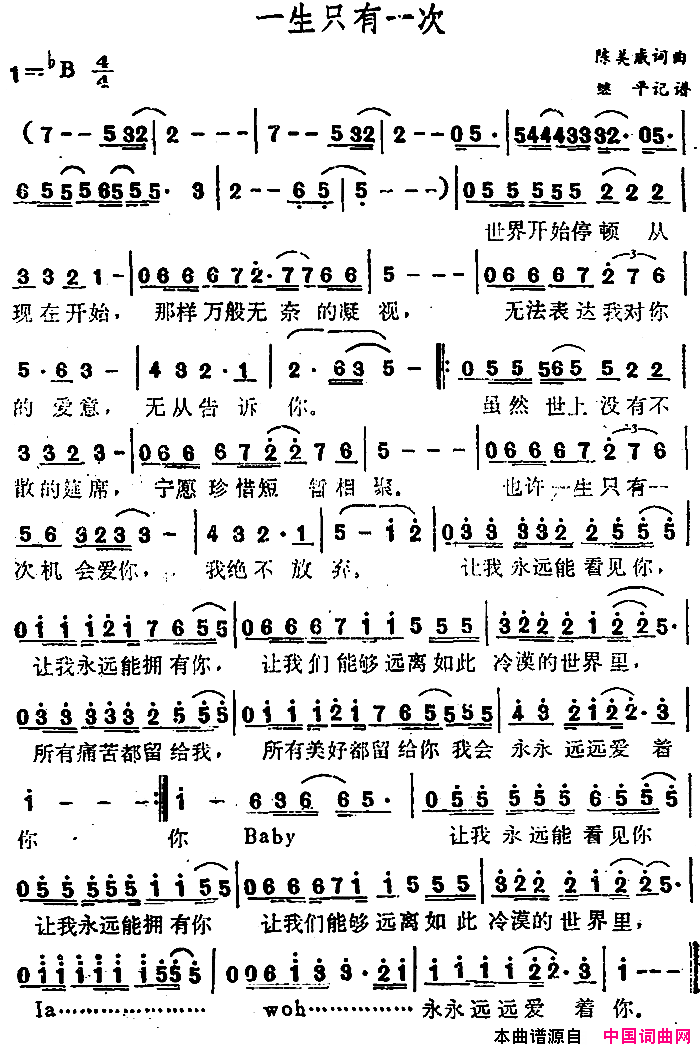 一生只有一次
1=♭B 4/4
陈美威词曲
继 平记谱
(7 - - 532 | 2 - - - | 7 - - 532 | 2 - - 05· | 544433332· 05·
6 5555 6555· 3 | 2 - - 65 | 5 - - - ) | 055 555 222
世界开始停顿 从
3321 - | 0666672·7766 | 5 - - - | 06667276
现在开始, 那样万般无奈的凝视, 无法表达我对你
5·63 - | 432·1 | 2·335 - |: 055 565 522
的爱意, 无从告诉你。 虽然世上没有不
3323 - | 06667227 66 | 5 - - - | 06667276
散的筵席, 宁愿珍惜短暂相聚。 也许一生只有一
56 3233 - | 432·1 | 5 - 12 | 033 332 2555
次机会爱你, 我绝不放弃。 让我永远能看见你,
011 1217 655 | 0666711 555 | 32221225·
让我永远能拥有你, 让我们能够远离如此 冷漠的世界里,
033 3332 2555 | 011 1217 65555 | 43 2122·3
所有痛苦都留给我, 所有美好都留给你 我会 永永远远爱着
1 - - - :| 1 - 636 65· | 055 5555 6555
你 你 Baby 让我永远能看见你
055 5555 1155 | 0666711 555 | 32221225·
让我永远能拥有你 让我们能够远离如此 冷漠的世界里,
011111 11555 | 00613 3·21 | 1111 22·3 | 1 - - - ‖
Ia………………… woh……………永永远远爱着你。
本曲谱源自 中国词曲网